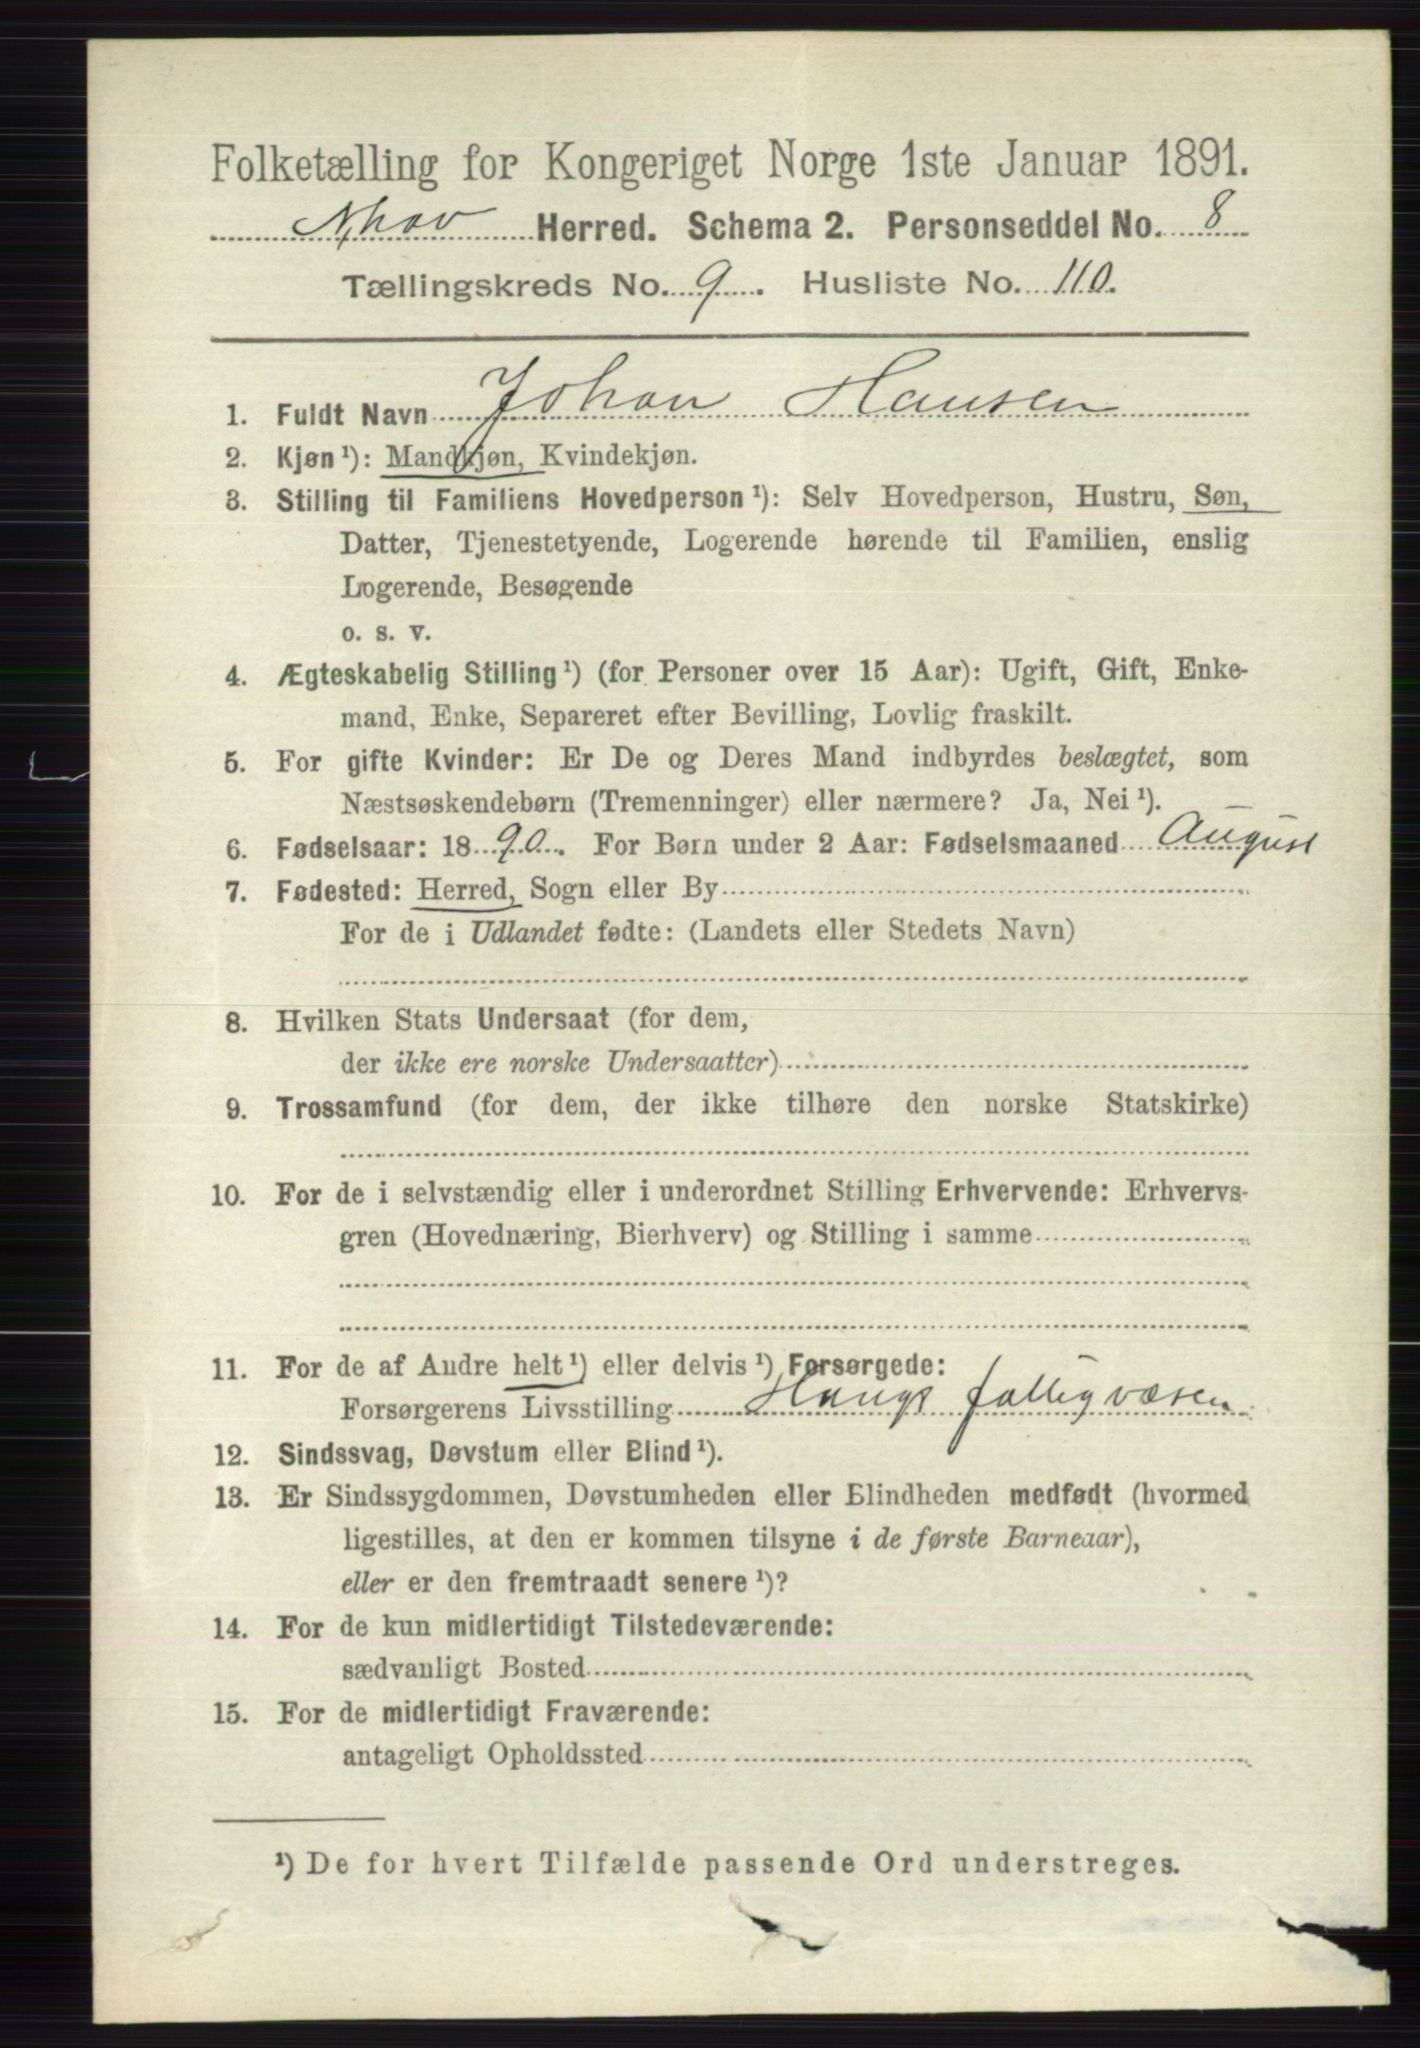 Folketælling for Kongeriget Norge 1ste Januar 1891.
Herred. Schema 2. Personseddel No. 8
Tællingskreds No. 9. Husliste No. 110.
1. Fuldt Navn Johan Hansen
2. Kjøn ¹): Mandkjøn, Kvindekjøn.
3. Stilling til Familiens Hovedperson ¹): Selv Hovedperson, Hustru, Søn,
Datter, Tjenestetyende, Logerende hørende til Familien, enslig
Logerende, Besøgende
o. s. v.
4. Ægteskabelig Stilling ¹) (for Personer over 15 Aar): Ugift, Gift, Enke-
mand, Enke, Separeret efter Bevilling, Lovlig fraskilt.
5. For gifte Kvinder: Er De og Deres Mand indbyrdes beslægtet, som
Næstsøskendebørn (Tremenninger) eller nærmere? Ja, Nei ¹).
6. Fødselsaar: 1890. For Børn under 2 Aar: Fødselsmaaned August
7. Fødested: Herred, Sogn eller By
For de i Udlandet fødte: (Landets eller Stedets Navn)
8. Hvilken Stats Undersaat (for dem,
der ikke ere norske Undersaatter)
9. Trossamfund (for dem, der ikke tilhøre den norske Statskirke)
10. For de i selvstændig eller i underordnet Stilling Erhvervende: Erhvervs-
gren (Hovednæring, Bierhverv) og Stilling i samme
11. For de af Andre helt ¹) eller delvis ¹) Forsørgede:
Forsørgerens Livsstilling
12. Sindssvag, Døvstum eller Blind ¹).
13. Er Sindssygdommen, Døvstumheden eller Blindheden medfødt (hvormed
ligestilles, at den er kommen tilsyne i de første Barneaar),
eller er den fremtraadt senere ¹)?
14. For de kun midlertidigt Tilstedeværende:
sædvanligt Bosted
15. For de midlertidigt Fraværende:
antageligt Opholdssted
¹) De for hvert Tilfælde passende Ord understreges.